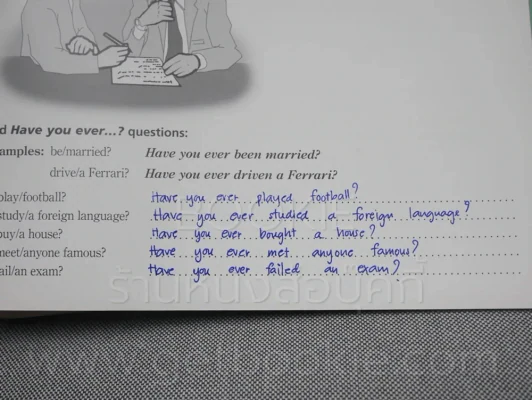 d Have you ever...? questions:
amples: be/married? Have you ever been married?
drive/a Ferrari? Have you ever driven a Ferrari?
play/football? Have you ever played football?
study/a foreign language? Have you ever studied a foreign language?
buy/a house? Have you ever bought a house?
meet/anyone famous? Have you ever met anyone famous?
ail/an exam? Have you ever failed an exam?
ร้านหนังสือบุคกี้
www.getbookie.com